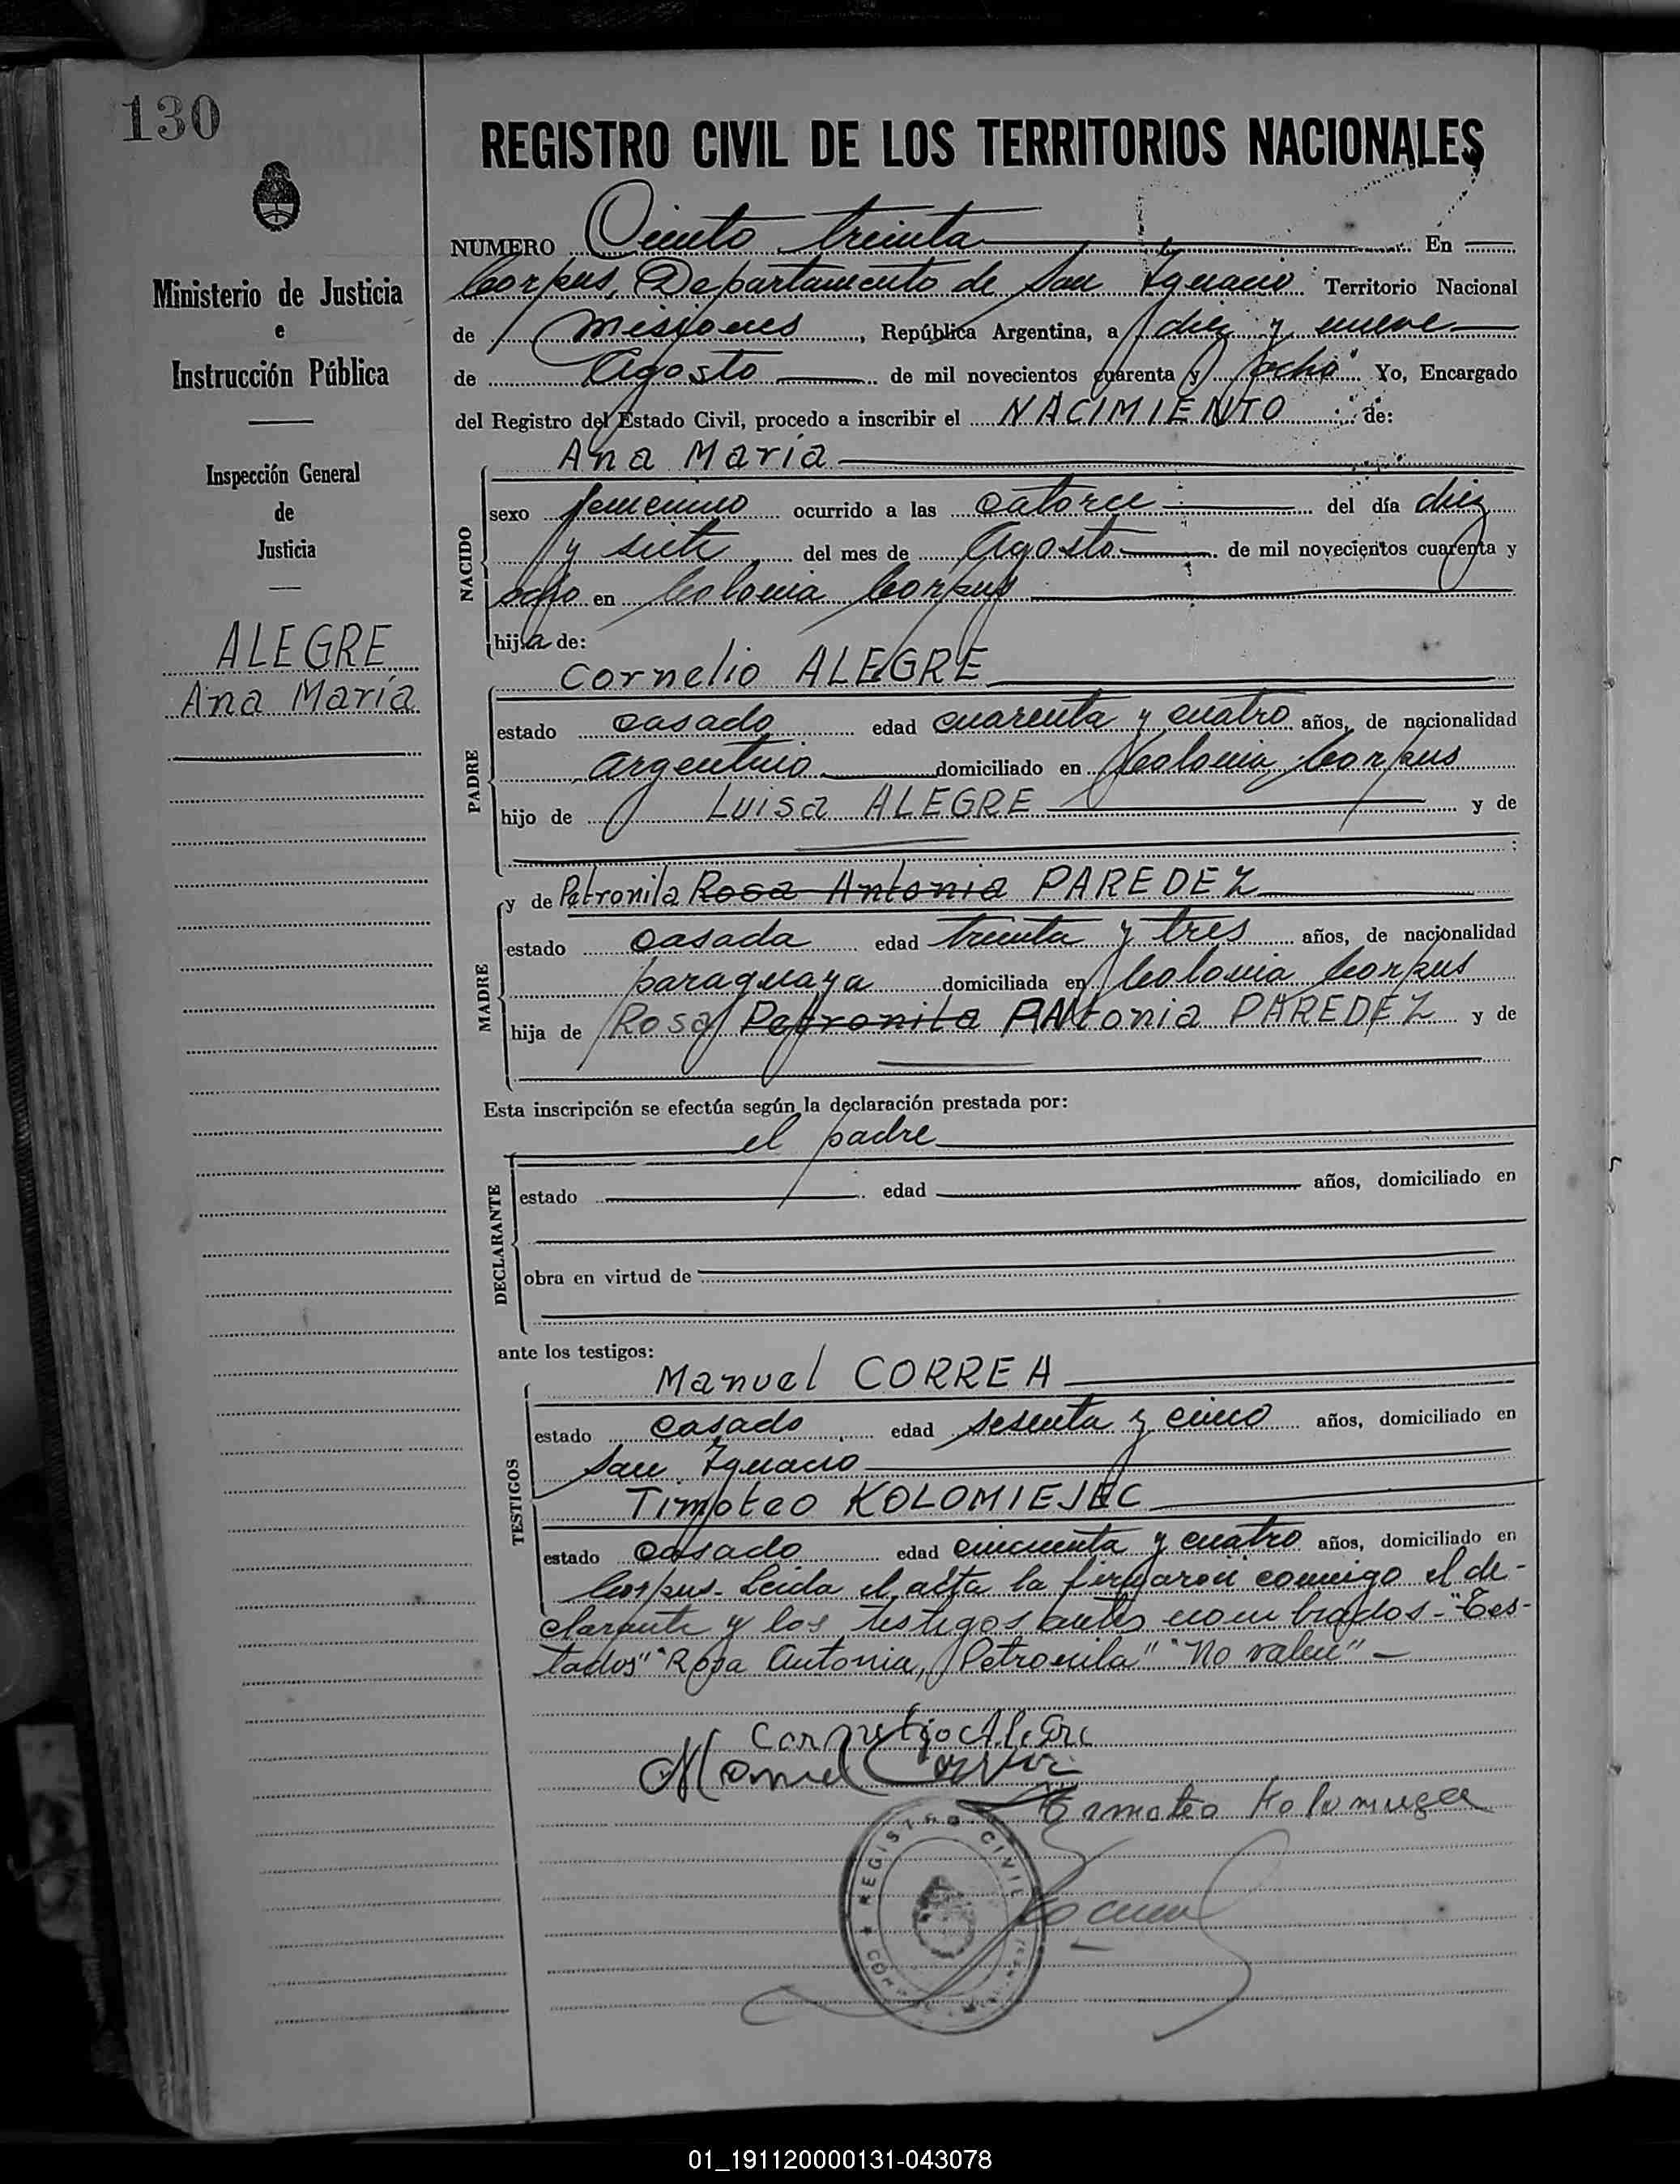 130
REGISTRO CIVIL DE LOS TERRITORIOS NACIONALES
Ministerio de Justicia
e
Instrucción Pública
Inspección General
de
Justicia
ALEGRE
Ana María
NUMERO Ciento treinta En
Corpus, Departamento de San Ignacio Territorio Nacional
de Misiones, República Argentina, a diez y nueve
de Agosto de mil novecientos cuarenta y ocho Yo, Encargado
del Registro del Estado Civil, procedo a inscribir el NACIMIENTO de:
Ana María
NACIDO
sexo femenino ocurrido a las catorce del día diez
y siete del mes de Agosto de mil novecientos cuarenta y
ocho en Colonia Corpus
hija de:
Cornelio ALEGRE
PADRE
estado casado edad cuarenta y cuatro años, de nacionalidad
argentino domiciliado en Colonia Corpus
hijo de Luisa ALEGRE y de
y de Petronila Rosa Antonia PAREDEZ
MADRE
estado casada edad treinta y tres años, de nacionalidad
paraguaya domiciliada en Colonia Corpus
hija de Rosa Petronila ANtonia PAREDEZ y de
Esta inscripción se efectúa según la declaración prestada por:
el padre
DECLARANTE
estado edad años, domiciliado en
obra en virtud de
ante los testigos:
Manuel CORREA
TESTIGOS
estado casado edad sesenta y cinco años, domiciliado en
San Ignacio
Timoteo KOLOMIEJEC
estado casado edad cincuenta y cuatro años, domiciliado en
Corpus. Leida el acta la firmaron conmigo el de-
clarante y los testigos antes nombrados - "Tes-
tados" "Rosa Antonia, Petronila" "No valen" -
Cornelio Alegre
Manuel Correa
REGISTRO CIVIL
01_191120000131-043078